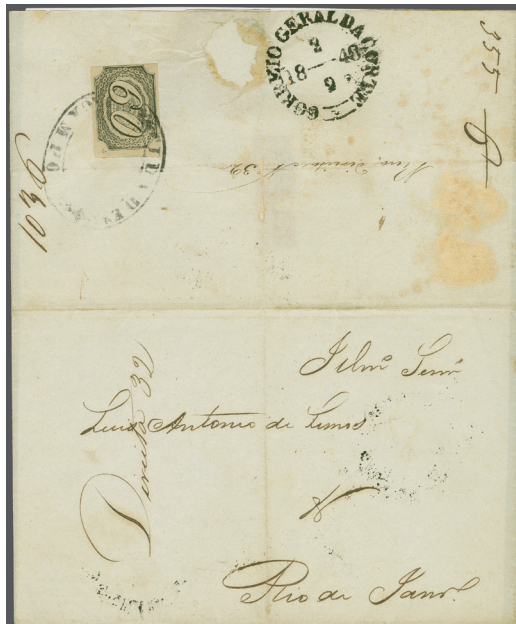 CORREIO GERAL DA CORTE
2
18 48
9
60
355
1036
32
Illmo Senr
Luis Antonio de Lemos
Direita 32
Rio de Janro